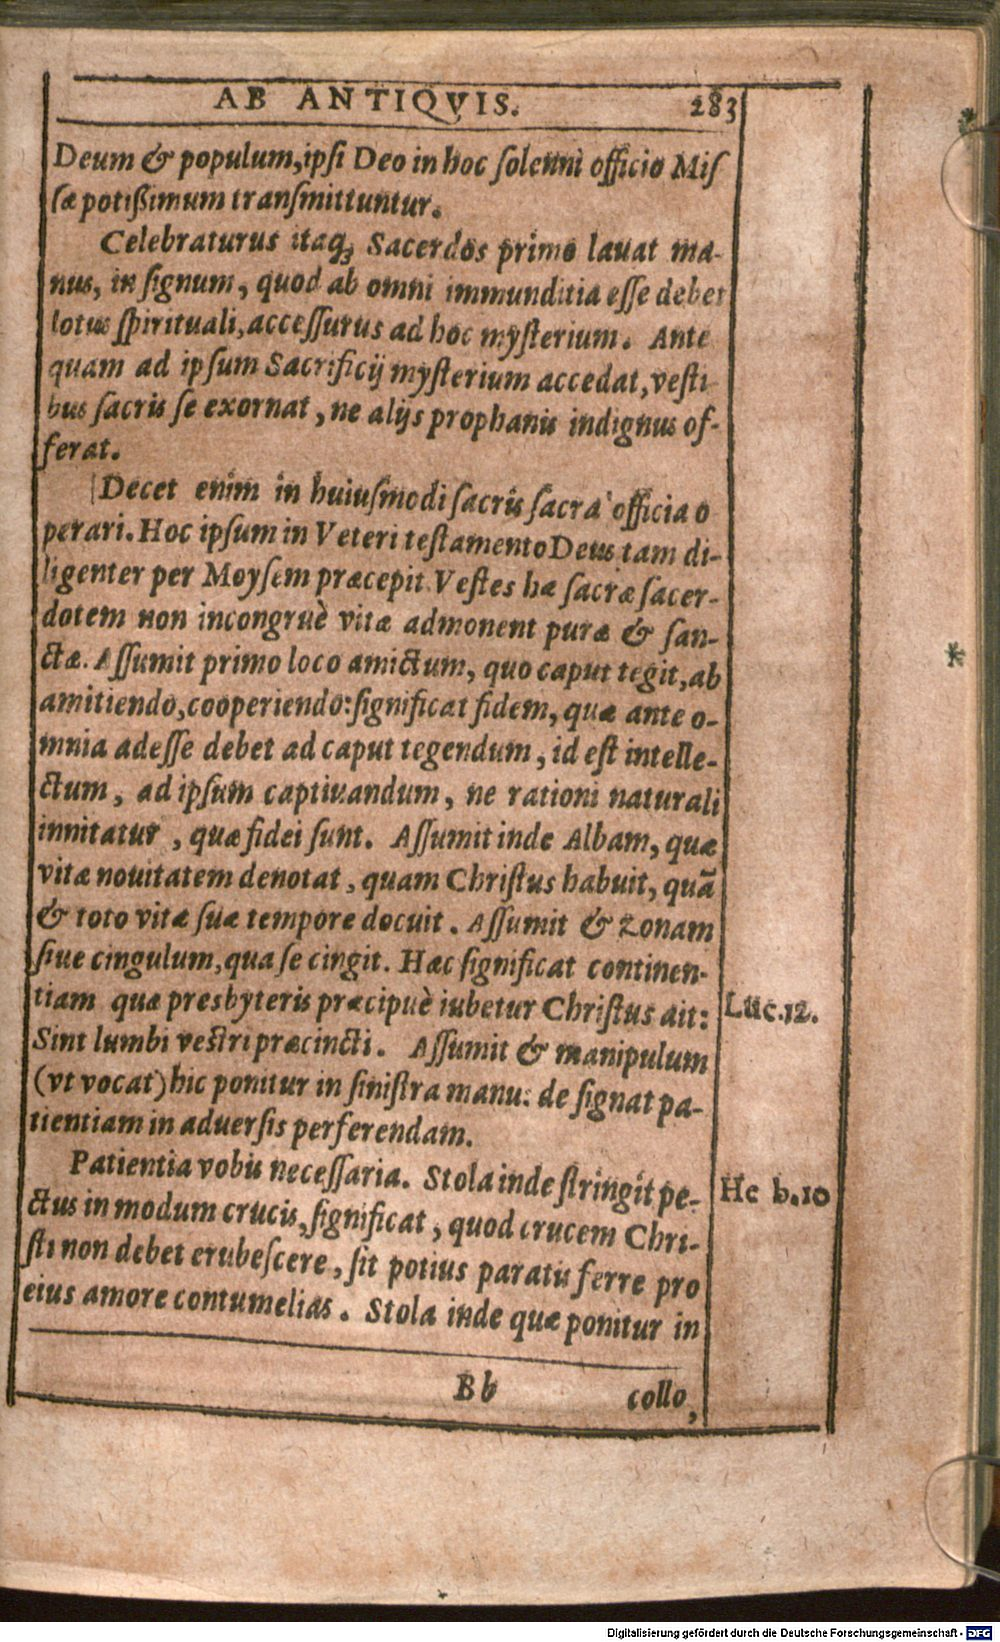 AB ANTIQVIS. 283
Deum & populum, ipsi Deo in hoc solenni officio Mis
sæ potißimum transmittuntur.
Celebraturus itaqꝫ Sacerdos primo lauat ma-
nus, in signum, quod ab omni immunditia esse debet
lotus spirituali, accessurus ad hoc mysterium. Ante
quam ad ipsum Sacrificij mysterium accedat, vesti
bus sacris se exornat, ne alijs prophanis indignus of-
ferat.
Decet enim in huiusmodi sacris sacra officia o
perari. Hoc ipsum in Veteri testamento Deus tam di-
ligenter per Moysem præcepit. Vestes hæ sacræ sacer-
dotem non incongruè vitæ admonent puræ & san-
ctæ. Assumit primo loco amictum, quo caput tegit, ab
amitiendo, cooperiendo: significat fidem, quæ ante o-
mnia adesse debet ad caput tegendum, id est intelle-
ctum, ad ipsum captiuandum, ne rationi naturali
innitatur, quæ fidei sunt. Assumit inde Albam, quæ
vitæ nouitatem denotat, quam Christus habuit, quā
& toto vitæ suæ tempore docuit. Assumit & Zonam
siue cingulum, qua se cingit. Hæc significat continen-
tiam quæ presbyteris præcipuè iubetur Christus ait:
Luc.12.
Sint lumbi vestri præcincti. Assumit & manipulum
(vt vocat) hic ponitur in sinistra manu: de signat pa-
tientiam in aduersis perferendam.
Patientia vobis necessaria. Stola inde stringit pe-
He b.10
ctus in modum crucis, significat, quod crucem Chri-
sti non debet erubescere, sit potius paratus ferre pro
eius amore contumelias. Stola inde quæ ponitur in
Bb collo,
Digitalisierung gefördert durch die Deutsche Forschungsgemeinschaft - DFG